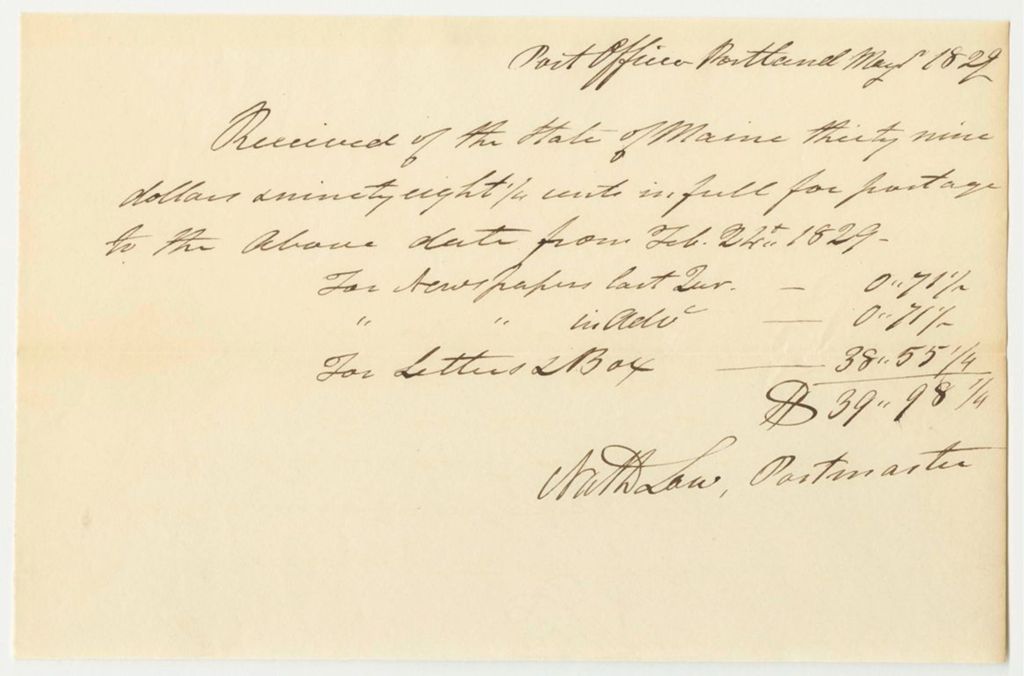 Post Office Portland May 1 1829
Received of the State of Maine thirty nine
dollars & ninety eight 1/4 cents in full for postage
to the above date from Feb. 24th 1829 -
For Newspapers last Qur. - 0"71 1/2
" " in Advc — 0"71 1/2
For Letters & Box — 38"55 1/4
$ 39"98 1/4
Nathl Low, Postmaster